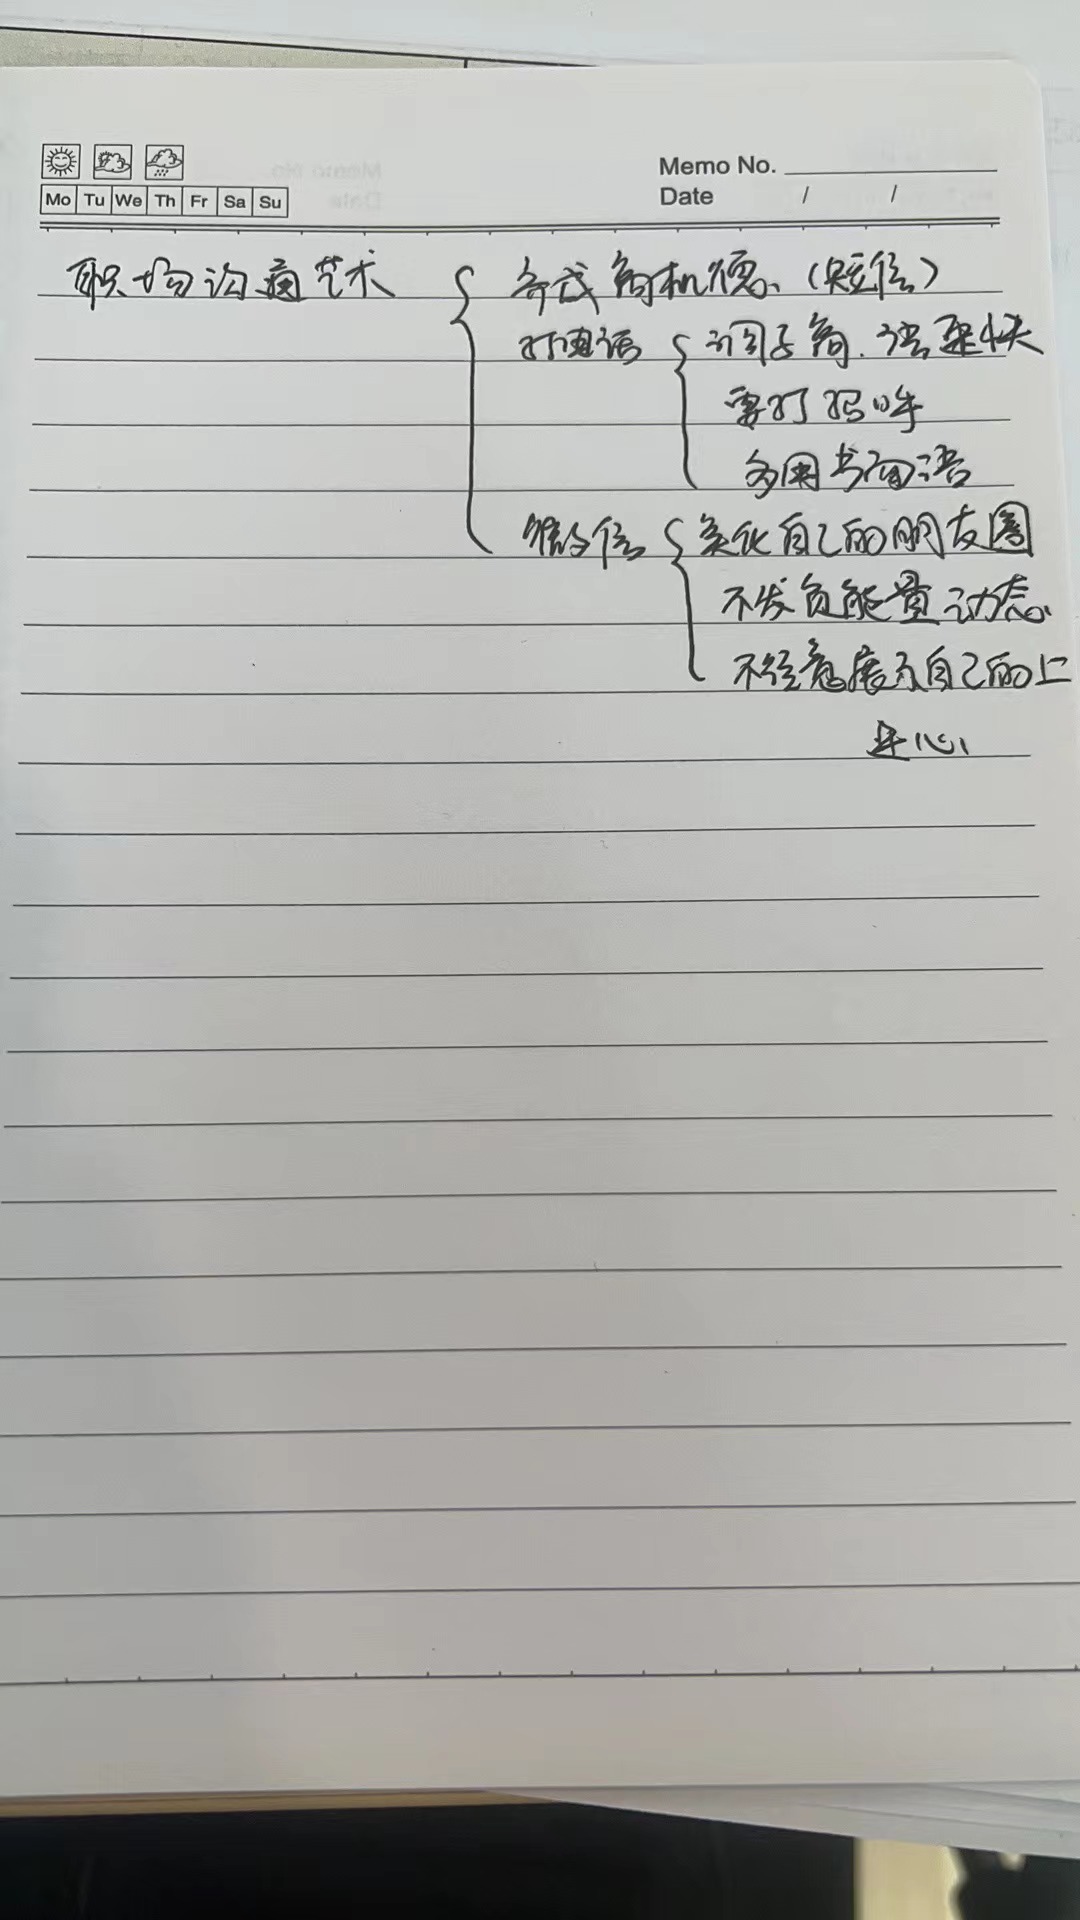 Memo No.
Date / /
Mo Tu We Th Fr Sa Su
职场沟通艺术 商机 (短信)
打电话 调子高、语速快
要打招呼
多用书面语
微信 美化自己的朋友圈
不发负能量动态
不经意展示自己的上
进心